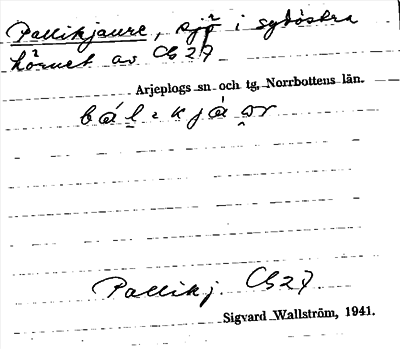 Pallikjaure, sjö i sydöstra
hörnet av Cb27
Arjeplogs sn och tg, Norrbottens län.
Pallikj. Cb27.
Sigvard Wallström, 1941.